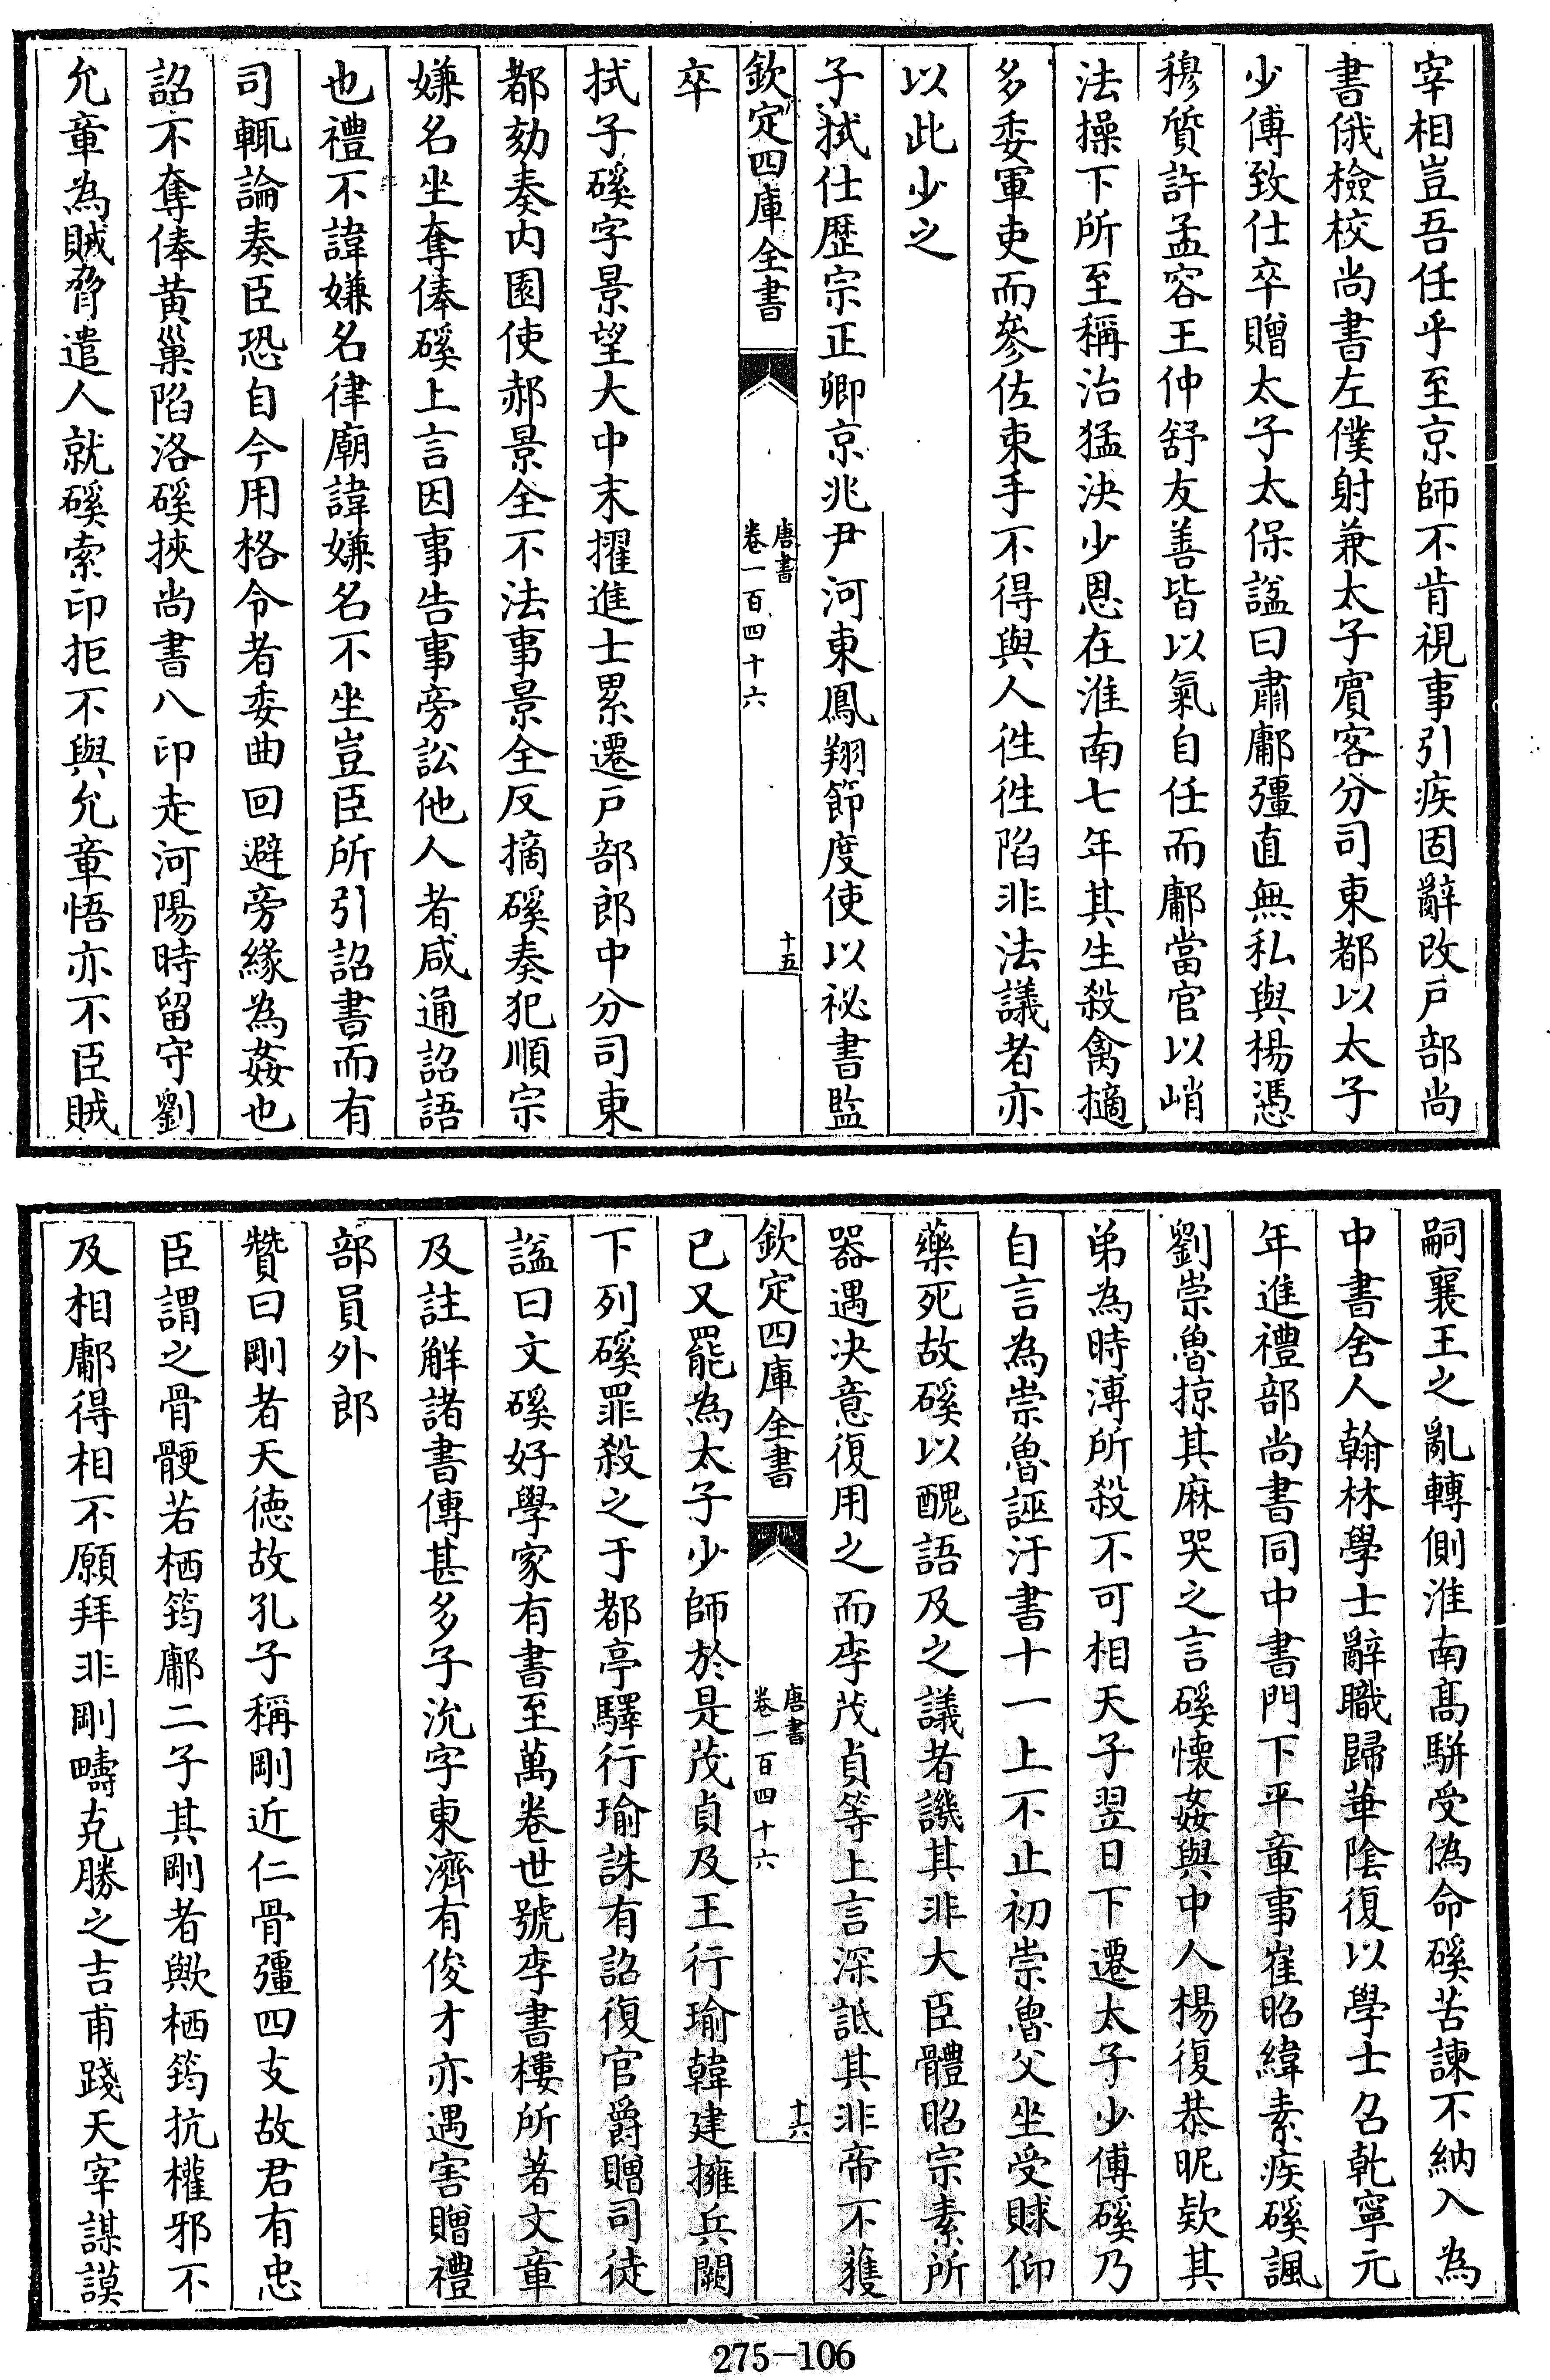 宰相豈吾任乎至京師不肯視事引疾固辭改戸部尚
書俄檢校尚書左僕射兼太子賓客分司東都以太子
少傅致仕卒贈太子太保諡曰肅鄘彊直無私與楊憑
穆質許孟容王仲舒友善皆以氣自任而鄘當官以峭
法操下所至稱治猛決少恩在淮南七年其生殺禽擿
多委軍吏而參佐束手不得與人徃徃陷非法議者亦
以此少之
子拭仕歷宗正卿京兆尹河東鳳翔節度使以祕書監
欽定四庫全書
唐書
卷一百四十六
十五
卒
拭子磎字景望大中末擢進士累遷戸部郎中分司東
都劾奏内園使郝景全不法事景全反摘磎奏犯順宗
嫌名坐奪俸磎上言因事告事旁訟他人者咸通詔語
也禮不諱嫌名律廟諱嫌名不坐豈臣所引詔書而有
司輒論奏臣恐自今用格令者委曲回避旁緣為姦也
詔不奪俸黄巢陷洛磎挾尚書八印走河陽時留守劉
允章為賊脅遣人就磎索印拒不與允章悟亦不臣賊
嗣襄王之亂轉側淮南髙駢受偽命磎苦諫不納入為
中書舍人翰林學士辭職歸華隂復以學士召乾寧元
年進禮部尚書同中書門下平章事崔昭緯素疾磎諷
劉崇魯掠其麻哭之言磎懐姦與中人楊復恭昵欵其
弟為時溥所殺不可相天子翌日下遷太子少傅磎乃
自言為崇魯誣汙書十一上不止初崇魯父坐受賕仰
藥死故磎以醜語及之議者譏其非大臣體昭宗素所
器遇决意復用之而李茂貞等上言深詆其非帝不獲
欽定四庫全書
唐書
卷一百四十六
十六
已又罷為太子少師於是茂貞及王行瑜韓建擁兵闕
下列磎罪殺之于都亭驛行瑜誅有詔復官爵贈司徒
諡曰文磎好學家有書至萬卷世號李書樓所著文章
及註解諸書傳甚多子沇字東濟有俊才亦遇害贈禮
部員外郎
贊曰剛者天德故孔子稱剛近仁骨彊四支故君有忠
臣謂之骨骾若栖筠鄘二子其剛者歟栖筠抗權邪不
及相鄘得相不願拜非剛疇克勝之吉甫踐天宰謀謨
275-106